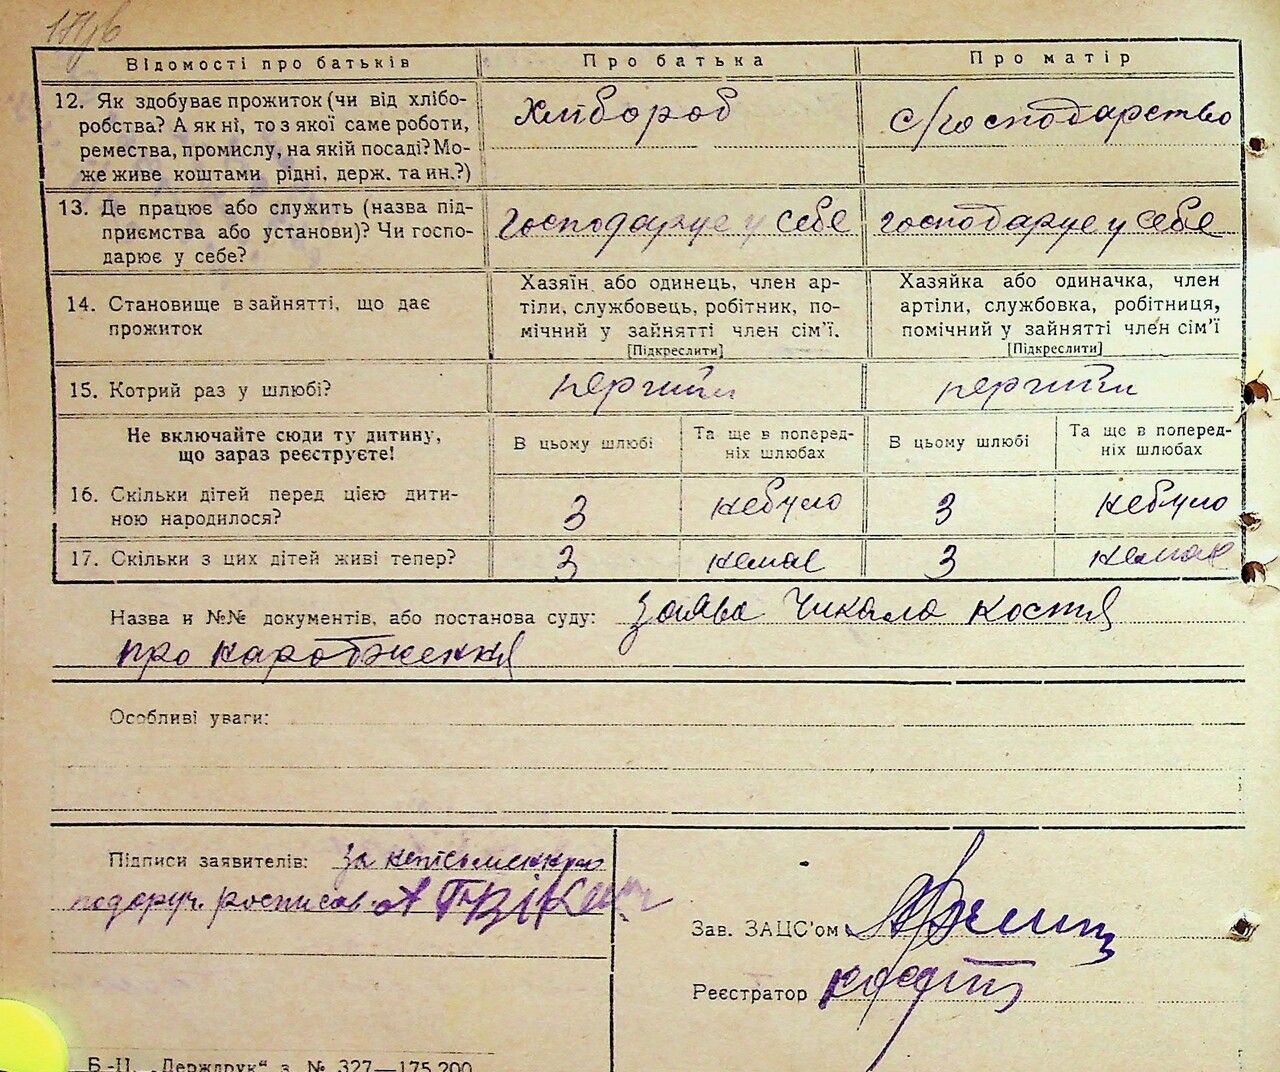 Відомості про батьків Про батька Про матір
12. Як здобуває прожиток (чи від хлібо-
робства? А як ні, то з якої саме роботи,
ремества, промислу, на якій посаді? Мо-
же живе коштами рідні, держ. та ин.?)
Хлібороб
с/господарство
13. Де працює або служить (назва під-
приємства або установи)? Чи госпо-
дарює у себе?
господарує у себе
господарує у себе
14. Становище в зайнятті, що дає
прожиток
Хазяїн або одинець, член ар-
тіли, службовець, робітник, по-
мічний у зайнятті член сім'ї.
[Підкреслити]
Хазяйка або одиначка, член
артіли, службовка, робітниця,
помічний у зайнятті член сім'ї
[Підкреслити]
15. Котрий раз у шлюбі?
перший
перший
Не включайте сюди ту дитину,
що зараз реєструєте!
В цьому шлюбі
Та ще в поперед-
ніх шлюбах
В цьому шлюбі
Та ще в поперед-
ніх шлюбах
16. Скільки дітей перед цією дити-
ною народилося?
3 небуло 3 небуло
17. Скільки з цих дітей живі тепер?
3 немає 3 немає
Назва и №№ документів, або постанова суду: заява Чикала Костя
про народження
Особливі уваги:
Підписи заявителів: За неписьменного
подоруч. росписав.
Зав. ЗАЦС'ом
Реєстратор
Б-Ц. „Держдрук“ з. № 327—175.200